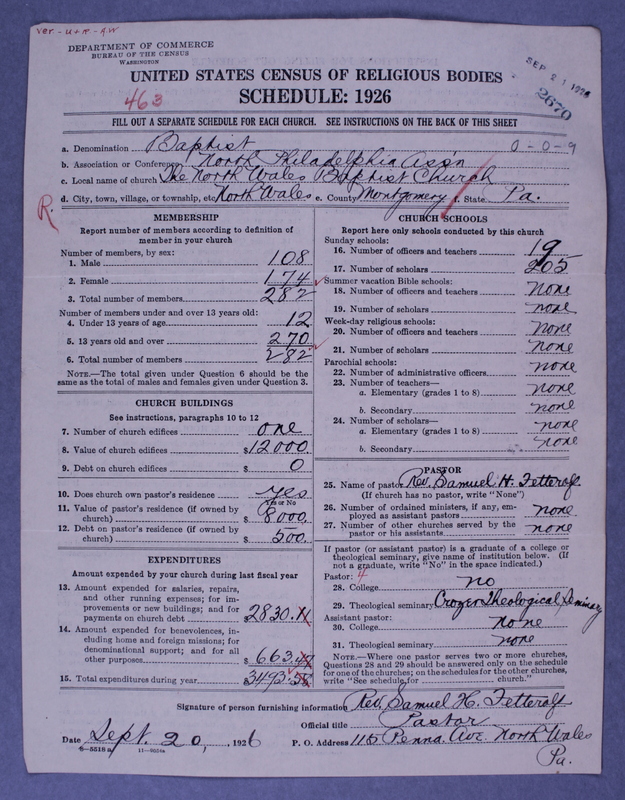 ver. - u + r - gw
DEPARTMENT OF COMMERCE
BUREAU OF THE CENSUS
WASHINGTON
SEP 21 1926
2670
UNITED STATES CENSUS OF RELIGIOUS BODIES
463
SCHEDULE: 1926
FILL OUT A SEPARATE SCHEDULE FOR EACH CHURCH. SEE INSTRUCTIONS ON THE BACK OF THIS SHEET
a. Denomination Baptist 0-0-9
b. Association or Conference North Philadelphia Ass'n
c. Local name of church The North Wales Baptist Church
d. City, town, village, or township, etc North Wales e. County Montgomery f. State Pa.
R.
MEMBERSHIP
Report number of members according to definition of
member in your church
Number of members, by sex:
1. Male 108
2. Female 174
3. Total number of members 282
Number of members under and over 13 years old:
4. Under 13 years of age 12
5. 13 years old and over 270
6. Total number of members 282
NOTE.—The total given under Question 6 should be the
same as the total of males and females given under Question 3.
CHURCH BUILDINGS
See instructions, paragraphs 10 to 12
7. Number of church edifices one
8. Value of church edifices $12000
9. Debt on church edifices $ 0
10. Does church own pastor's residence yes
Yes or No
11. Value of pastor's residence (if owned by
church) $ 8000
12. Debt on pastor's residence (if owned by
church) $ 500
EXPENDITURES
Amount expended by your church during last fiscal year
13. Amount expended for salaries, repairs,
and other running expenses; for im-
provements or new buildings; and for
payments on church debt 2830.
14. Amount expended for benevolences, in-
cluding home and foreign missions; for
denominational support; and for all
other purposes $ 663.
15. Total expenditures during year $3493.
CHURCH SCHOOLS
Report here only schools conducted by this church
Sunday schools:
16. Number of officers and teachers 19
17. Number of scholars 205
Summer vacation Bible schools:
18. Number of officers and teachers none
19. Number of scholars none
Week-day religious schools:
20. Number of officers and teachers none
21. Number of scholars none
Parochial schools:
22. Number of administrative officers none
23. Number of teachers—
a. Elementary (grades 1 to 8) none
b. Secondary none
24. Number of scholars—
a. Elementary (grades 1 to 8) none
b. Secondary none
PASTOR
25. Name of pastor Rev. Samuel H. Fetterolf
(If church has no pastor, write "None")
26. Number of ordained ministers, if any, em-
ployed as assistant pastors none
27. Number of other churches served by the
pastor or his assistants none
If pastor (or assistant pastor) is a graduate of a college or
theological seminary, give name of institution below. (If
not a graduate, write "No" in the space indicated.)
Pastor: 4
28. College no
29. Theological seminary Crozer Theological Seminary
Assistant pastor:
30. College none
31. Theological seminary none
NOTE.—Where one pastor serves two or more churches,
Questions 28 and 29 should be answered only on the schedule
for one of the churches; on the schedules for the other churches,
write "See schedule for church."
Signature of person furnishing information Rev. Samuel H. Fetterolf
Official title Pastor
Date Sept. 20, 1926 P. O. Address 115 Penna. Ave. North Wales
Pa.
8—5518a 11—9034a